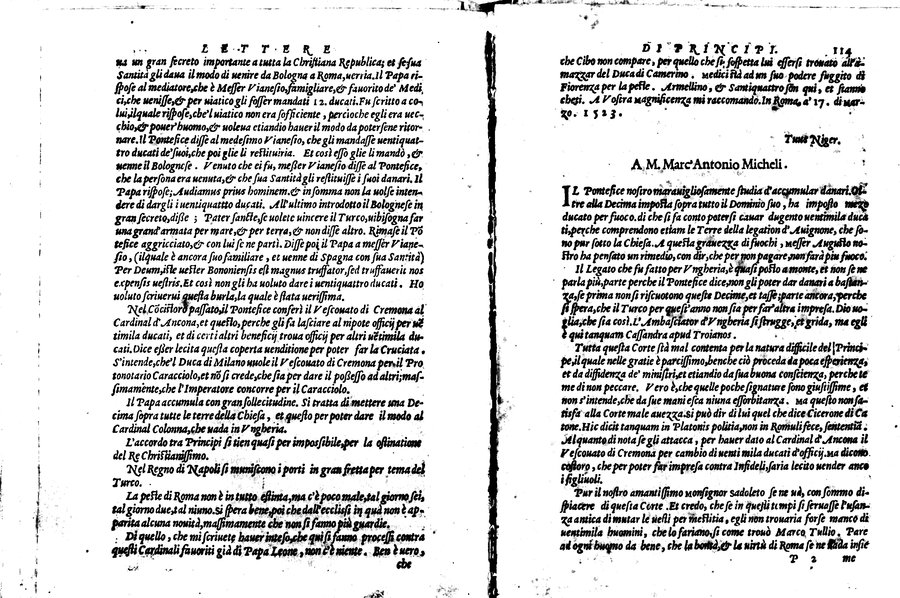 LETTERE
ua un gran secreto importante a tutta la Christiana Republica; et se sua
Santità gli daua il modo di uenire da Bologna a Roma, uerria. Il Papa ri-
spose al mediatore, che è Messer Vianesio, famigliare, & fauorito de' Medi
ci, che uenisse, & per uiatico gli fosser mandati 12. ducati. Fu scritto a co-
lui, il quale rispose, che'l uiatico non era sofficiente, percioche egli era uec-
chio, & pouer'huomo, & uoleua etiandio hauer il modo da potersene ritor-
nare. Il Pontefice disse al medesimo Vianesio, che gli mandasse uentiqua-
tro ducati de' suoi, che poi glie li restituiria. Et così esso glie li mandò, &
uenne il Bolognese. Venuto che ei fu, messer Vianesio disse al Pontefice,
che la persona era uenuta, & che sua Santità gli restituisse i suoi danari. Il
Papa rispose; Audiamus prius hominem. & in somma non la uolse inten-
dere di dargli i uentiquattro ducati. All'ultimo introdotto il Bolognese in
gran secreto, disse; Pater sancte, se uolete uincere il Turco, ui bisogna far
una grand'armata per mare, & per terra, & non disse altro. Rimase il Pō
tefice aggricciato, & con lui se ne partì. Disse poi il Papa a messer Viane-
sio, (il quale è ancora suo familiare, et uenne di Spagna con sua Santità)
Per Deum, iste uester Bononiensis est magnus truffator, sed truffauerit nos
expensis uestris. Et così non gli ha uoluto dare i uentiquattro ducati. Ho
uoluto scriuerui questa burla, la quale è stata uerissima.
Nel Cōcistoro passato, il Pontefice conferì il Vescouato di Cremona al
Cardinal d'Ancona, et questo, perche gli fa lasciare al nipote officij per uē
timila ducati, et di certi altri beneficij troua officij per altri uētimila du-
cati. Dice esser lecita questa coperta uenditione per poter far la Cruciata.
S'intende, che'l Duca di Milano uuole il Vescouato di Cremona per il Pro
tonotario Caracciolo, et nō si crede, che sia per dare il possesso ad altri; mas-
simamente, che l'Imperatore concorre per il Caracciolo.
Il Papa accumula con gran sollecitudine. Si tratta di mettere una De-
cima sopra tutte le terre della Chiesa, et questo per poter dare il modo al
Cardinal Colonna, che uada in Vngheria.
L'accordo tra Principi si tien quasi per impossibile, per la ostinatione
del Re Christianissimo.
Nel Regno di Napoli si muniscono i porti in gran fretta per tema del
Turco.
La peste di Roma non è in tutto estinta, ma c'è poco male, tal giorno sei,
tal giorno due, tal niuno. si spera bene, poi che dall'ecclissi in quà non è ap-
parita alcuna nouità, massimamente che non si fanno più guardie.
Di quello, che mi scriuete hauer inteso, che qui si fanno processi contra
questi Cardinali fauoriti già di Papa Leone, non c'è niente. Ben è uero,
che
DI PRINCIPI. 114
che Cibo non compare, per quello che si sospetta lui essersi trouato all'a-
mazzar del Duca di Camerino. Medici stà ad un suo podere fuggito di
Fiorenza per la peste. Armellino, et Santiquattro son qui, et stanno
cheti. A Vostra Magnificenza mi raccomando. In Roma, a' 17. di Mar-
zo. 1523.
Tuus Niger.
A M. Marc'Antonio Micheli.
IL Pontefice nostro marauigliosamente studia d'accumular danari. Ol-
tre alla Decima imposta sopra tutto il Dominio suo, ha imposto mezo
ducato per fuoco. di che si fa conto potersi cauar dugento uentimila duca
ti, perche comprendono etiam le Terre della legation d'Auignone, che so-
no pur sotto la Chiesa. A questa grauezza di fuochi, messer Augusto no-
stro ha pensato un rimedio, con dir, che per non pagare, non farà piu fuoco.
Il Legato che fu fatto per Vngheria, è quasi posto a monte, et non se ne
parla più, parte perche il Pontefice dice, non gli poter dar danari a bastan-
za, se prima non si riscuotono queste Decime, et tasse; parte ancora, perche
si spera, che il Turco per quest'anno non sia per far'altra impresa. Dio uo-
glia, che sia così. L'Ambasciator d'Vngheria si strugge, et grida, ma egli
è qui tanquam Cassandra apud Troianos.
Tutta questa Corte stà mal contenta per la natura difficile del Princi-
pe, il quale nelle gratie è parcissimo, benche ciò proceda da poca esperienza,
et da diffidenza de' ministri, et etiandio da sua buona conscienza, perche te
me di non peccare. Vero è, che quelle poche signature sono giustissime, et
non s'intende, che da sue mani esca niuna essorbitanza. Ma questo non sa-
tisfa alla Corte male auezza. si può dir di lui quel che dice Cicerone di Ca
tone. Hic dicit tanquam in Platonis politia, non in Romuli fece, sententiā.
Al quanto di nota se gli attacca, per hauer dato al Cardinal d'Ancona il
Vescouato di Cremona per cambio di uenti mila ducati d'officij. Ma dicono
costoro, che per poter far impresa contra Infideli, saria lecito uender anco
i figliuoli.
Pur il nostro amantissimo Monsignor Sadoleto se ne uà, con sommo di-
spiacere di questa Corte. Et credo, che se in questi tempi si seruasse l'usan-
za antica di mutar le uesti per mestitia, egli non trouaria forse manco di
uentimila huomini, che lo fariano, si come trouò Marco Tullio. Pare
ad ogni huomo da bene, che la bontà, & la uirtù di Roma se ne uada insie
P 2 me